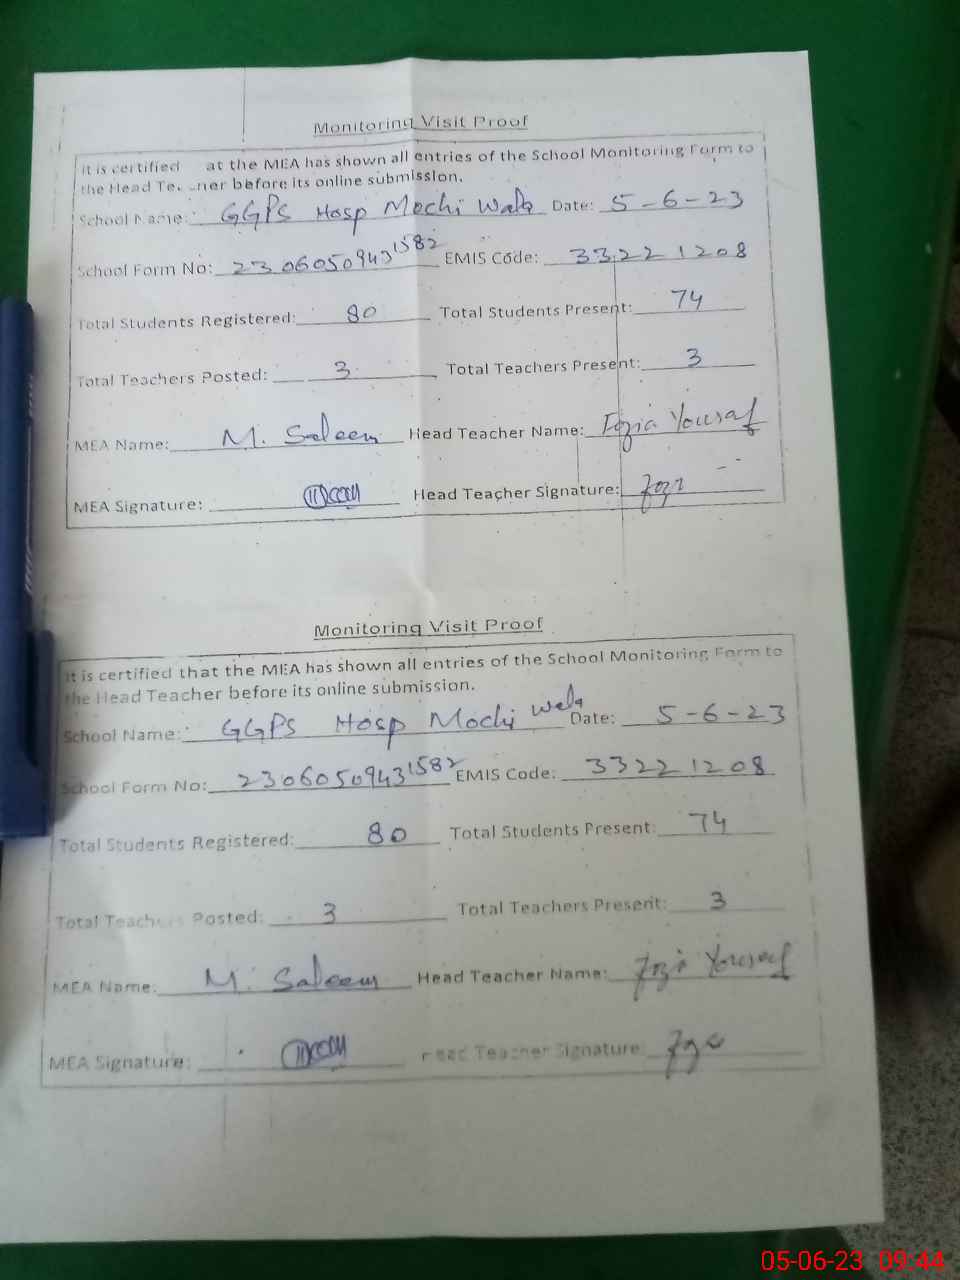 Monitoring Visit Proof
It is certified at the MEA has shown all entries of the School Monitoring Form to
the Head Te ner before its online submission.
School Name: GGPS Hosp Mochi Wala Date: 5-6-23
School Form No: 23060509431582 EMIS Code: 33221208
Total Students Registered: 80 Total Students Present: 74
Total Teachers Posted: 3 Total Teachers Present: 3
MEA Name: M. Saleem Head Teacher Name: Fozia Yousaf
MEA Signature: Head Teacher Signature:
Monitoring Visit Proof
It is certified that the MEA has shown all entries of the School Monitoring Form to
the Head Teacher before its online submission.
School Name: GGPS Hosp Mochi Wala Date: 5-6-23
School Form No: 23060509431582 EMIS Code: 33221208
Total Students Registered: 80 Total Students Present: 74
Total Teachers Posted: 3 Total Teachers Present: 3
MEA Name: M. Saleem Head Teacher Name: Fozia Yousaf
MEA Signature: Head Teacher Signature:
05-06-23 09:44